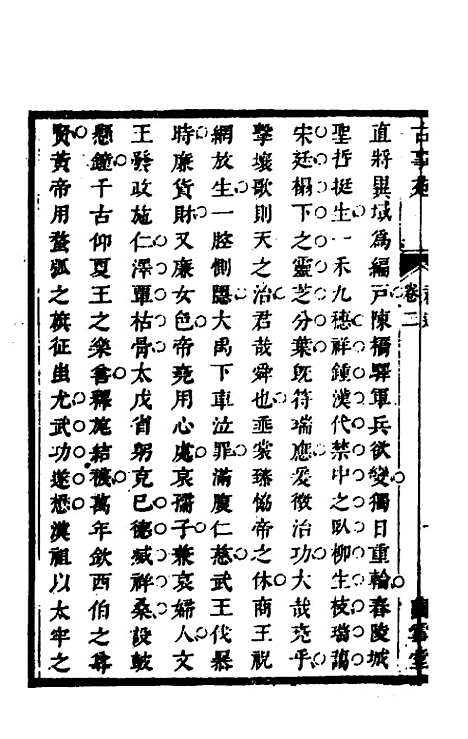 直將異域為編戶陳橋驛軍兵欲變獨日重輪舂陵城
聖哲挺生一禾九穗祥鍾漢代禁中之臥柳生枝瑞藹
宋廷榻下之靈芝分葉既符瑞應爰徵治功大哉堯乎
擊壤歌則天之治君哉舜也垂裳臻恊帝之休商王祝
網放生一腔惻隠大禹下車泣罪滿腹仁慈武王伐暴
時廉貨財又廉女色帝堯用心處哀孺子兼哀婦人文
王發政施仁澤覃枯骨太戊省躬克已德烕祥桑設鼓
懸鐘千古仰夏王之樂善釋旄結襪萬年欽西伯之尊
賢黃帝用蝥弧之旗征蚩尤武功遂懋漢祖以太牢之
卷二